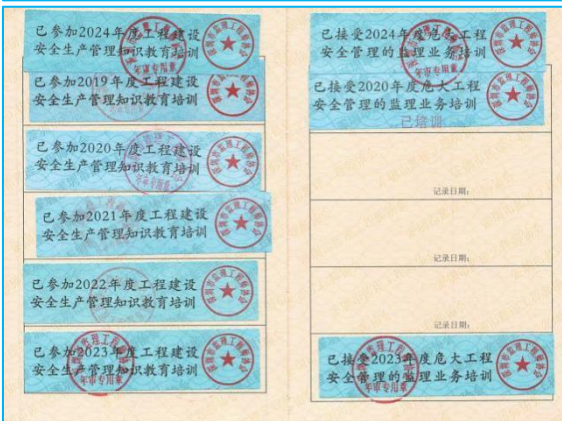 已参加2024年度工程建设
安全生产管理知识教育培训
年审专用章
已参加2019年度工程建设
安全生产管理知识教育培训
已参加2020年度工程建设
安全生产管理知识教育培训
已参加2021年度工程建设
安全生产管理知识教育培训
已参加2022年度工程建设
安全生产管理知识教育培训
已参加2023年度工程建设
安全生产管理知识教育培训
年审专用章
已接受2024年度危大工程
安全管理的监理业务培训
年审专用章
已接受2020年度危大工程
安全管理的监理业务培训
已培训
记录日期:
记录日期:
记录日期:
已接受2023年度危大工程
安全管理的监理业务培训